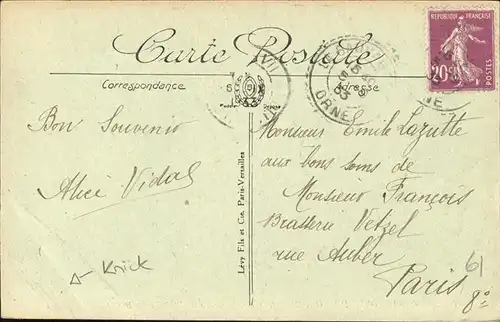 Carte Postale
Correspondance
Adresse
RÉPUBLIQUE FRANÇAISE
20c
POSTES
ORNE
Bon Souvenir
Alice Vidal
Knick
Lévy Fils et Cie, Paris-Versailles
Monsieur Emile Lazutte
aux bons soins de
Monsieur François
Brasserie Vetzel
rue Auber
Paris
61
8º